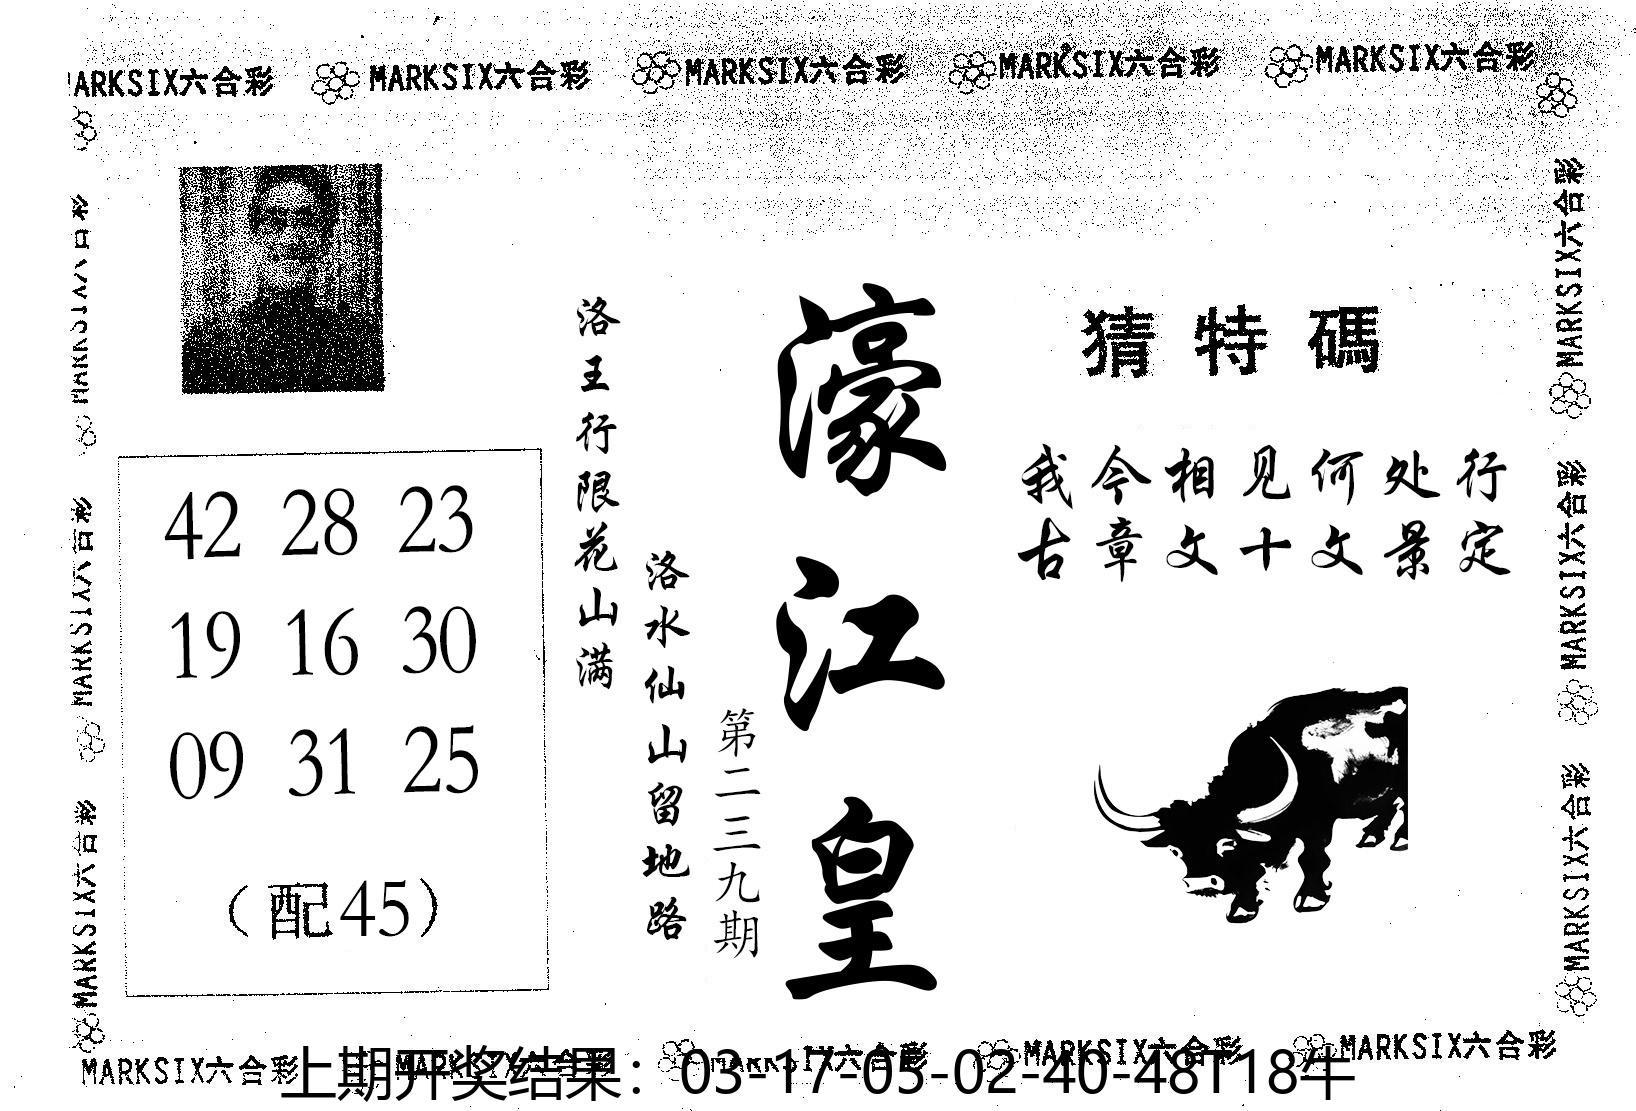 MARKSIX六合彩 MARKSIX六合彩 MARKSIX六合彩 MARKSIX六合彩 MARKSIX六合彩
猜特碼
我今相见何处行
古章文十文景定
濠江皇
第二三九期
洛王行限花山满
洛水仙山留地路
42 28 23
19 16 30
09 31 25
（配45）
MARKSIX六合彩
MARKSIX六合彩
MARKSIX六合彩
MARKSIX六合彩
MARKSIX六合彩
MARKSIX六合彩
MARKSIX六合彩 MARKSIX六合彩 MARKSIX六合彩 MARKSIX六合彩 MARKSIX六合彩
上期开奖结果：03-17-05-02-40-48T18牛